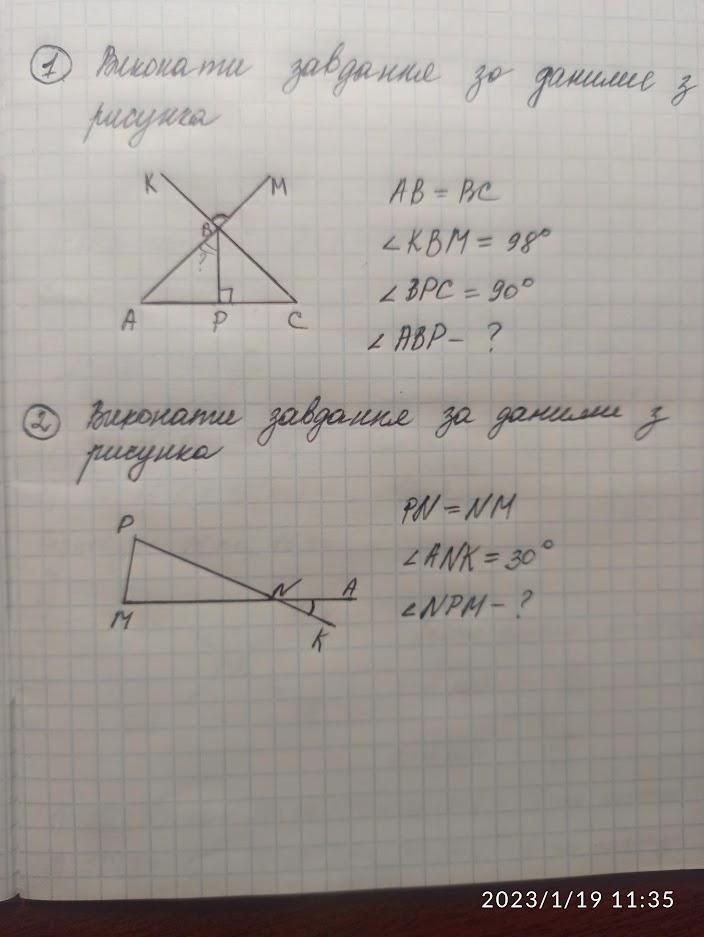 1 Виконати завдання за даними з
рисунка
K
M
B
?
A
P
C
AB = BC
∠KBM = 98°
∠BPC = 90°
∠ABP - ?
2 Виконати завдання за даними з
рисунка
P
N
A
M
K
PN = NM
∠ANK = 30°
∠NPM - ?
2023/1/19 11:35